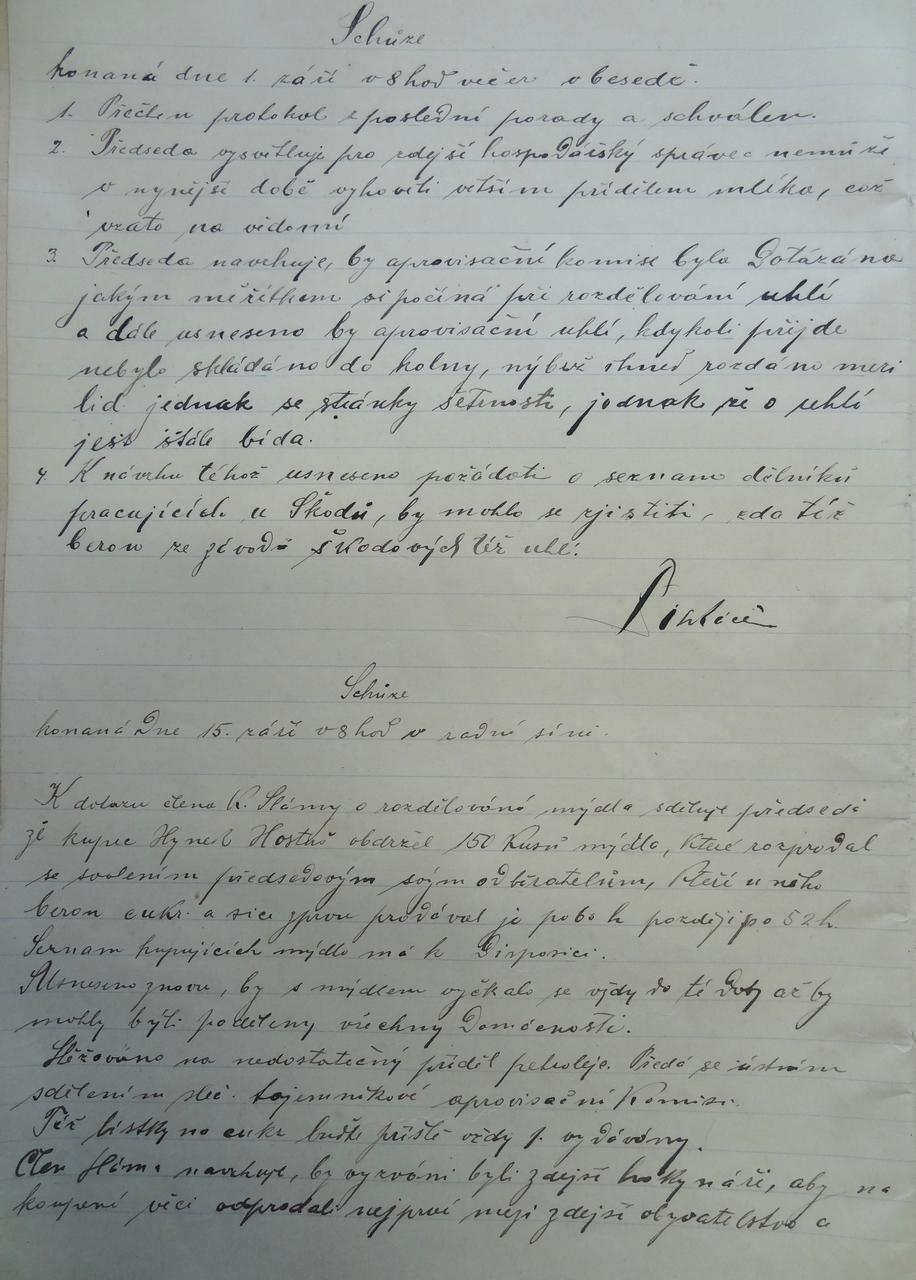 Schůze
konaná dne 1. září v 8 hod večer v besedě.
1. Přečten protokol z poslední porady a schválen.
2. Předseda vysvětluje pro zdejší hospodářský správce nemůže
v nynější době vyhověti větším přídělem mléka, což
vzato na vědomí
3. Předseda navrhuje, by aprovisační komise byla dotázána
jakým měřítkem si počíná při rozdělování uhlí
a dále usneseno by aprovisační uhlí, kdykoli přijde
nebylo skládáno do kolny, nýbrž ihned rozdáno mezi
lid jednak se stránky šetrnosti, jednak že o uhlí
jest stále bída.
4. K návrhu téhož usneseno požádati o seznam dělníků
pracujících u Škodů, by mohlo se zjistiti, zda též
berou ze závodů škodových též uhlí.
Schůze
konaná dne 15. září v 8 hod v radní síni.
K dotazu člena K. Slámy o rozdělování mýdla sděluje předseda
že kupec Hynek obdržel 150 kusů mýdla, které rozprodal
se svolením předsedovým svým odběratelům, kteří u něho
berou cukr. a sice zprvu prodával je po 60 h později po 52 h.
Seznam kupujících mýdlo má k disposici.
Usneseno znovu, by s mýdlem vyčkalo se vždy do té doby až by
mohly býti poděleny všechny domácnosti.
Stěžováno na nedostatečný příděl petroleje. Předá se ústním
sdělením sleč. tajemníkové aprovisační komisi.
Též lístky na cukr buďte příště vždy 1. vydávány.
Člen Sláma navrhuje, by vyzváni byli zdejší hokynáři, aby na
koupené věci odprodali nejprvé mezi zdejší obyvatelstvo a